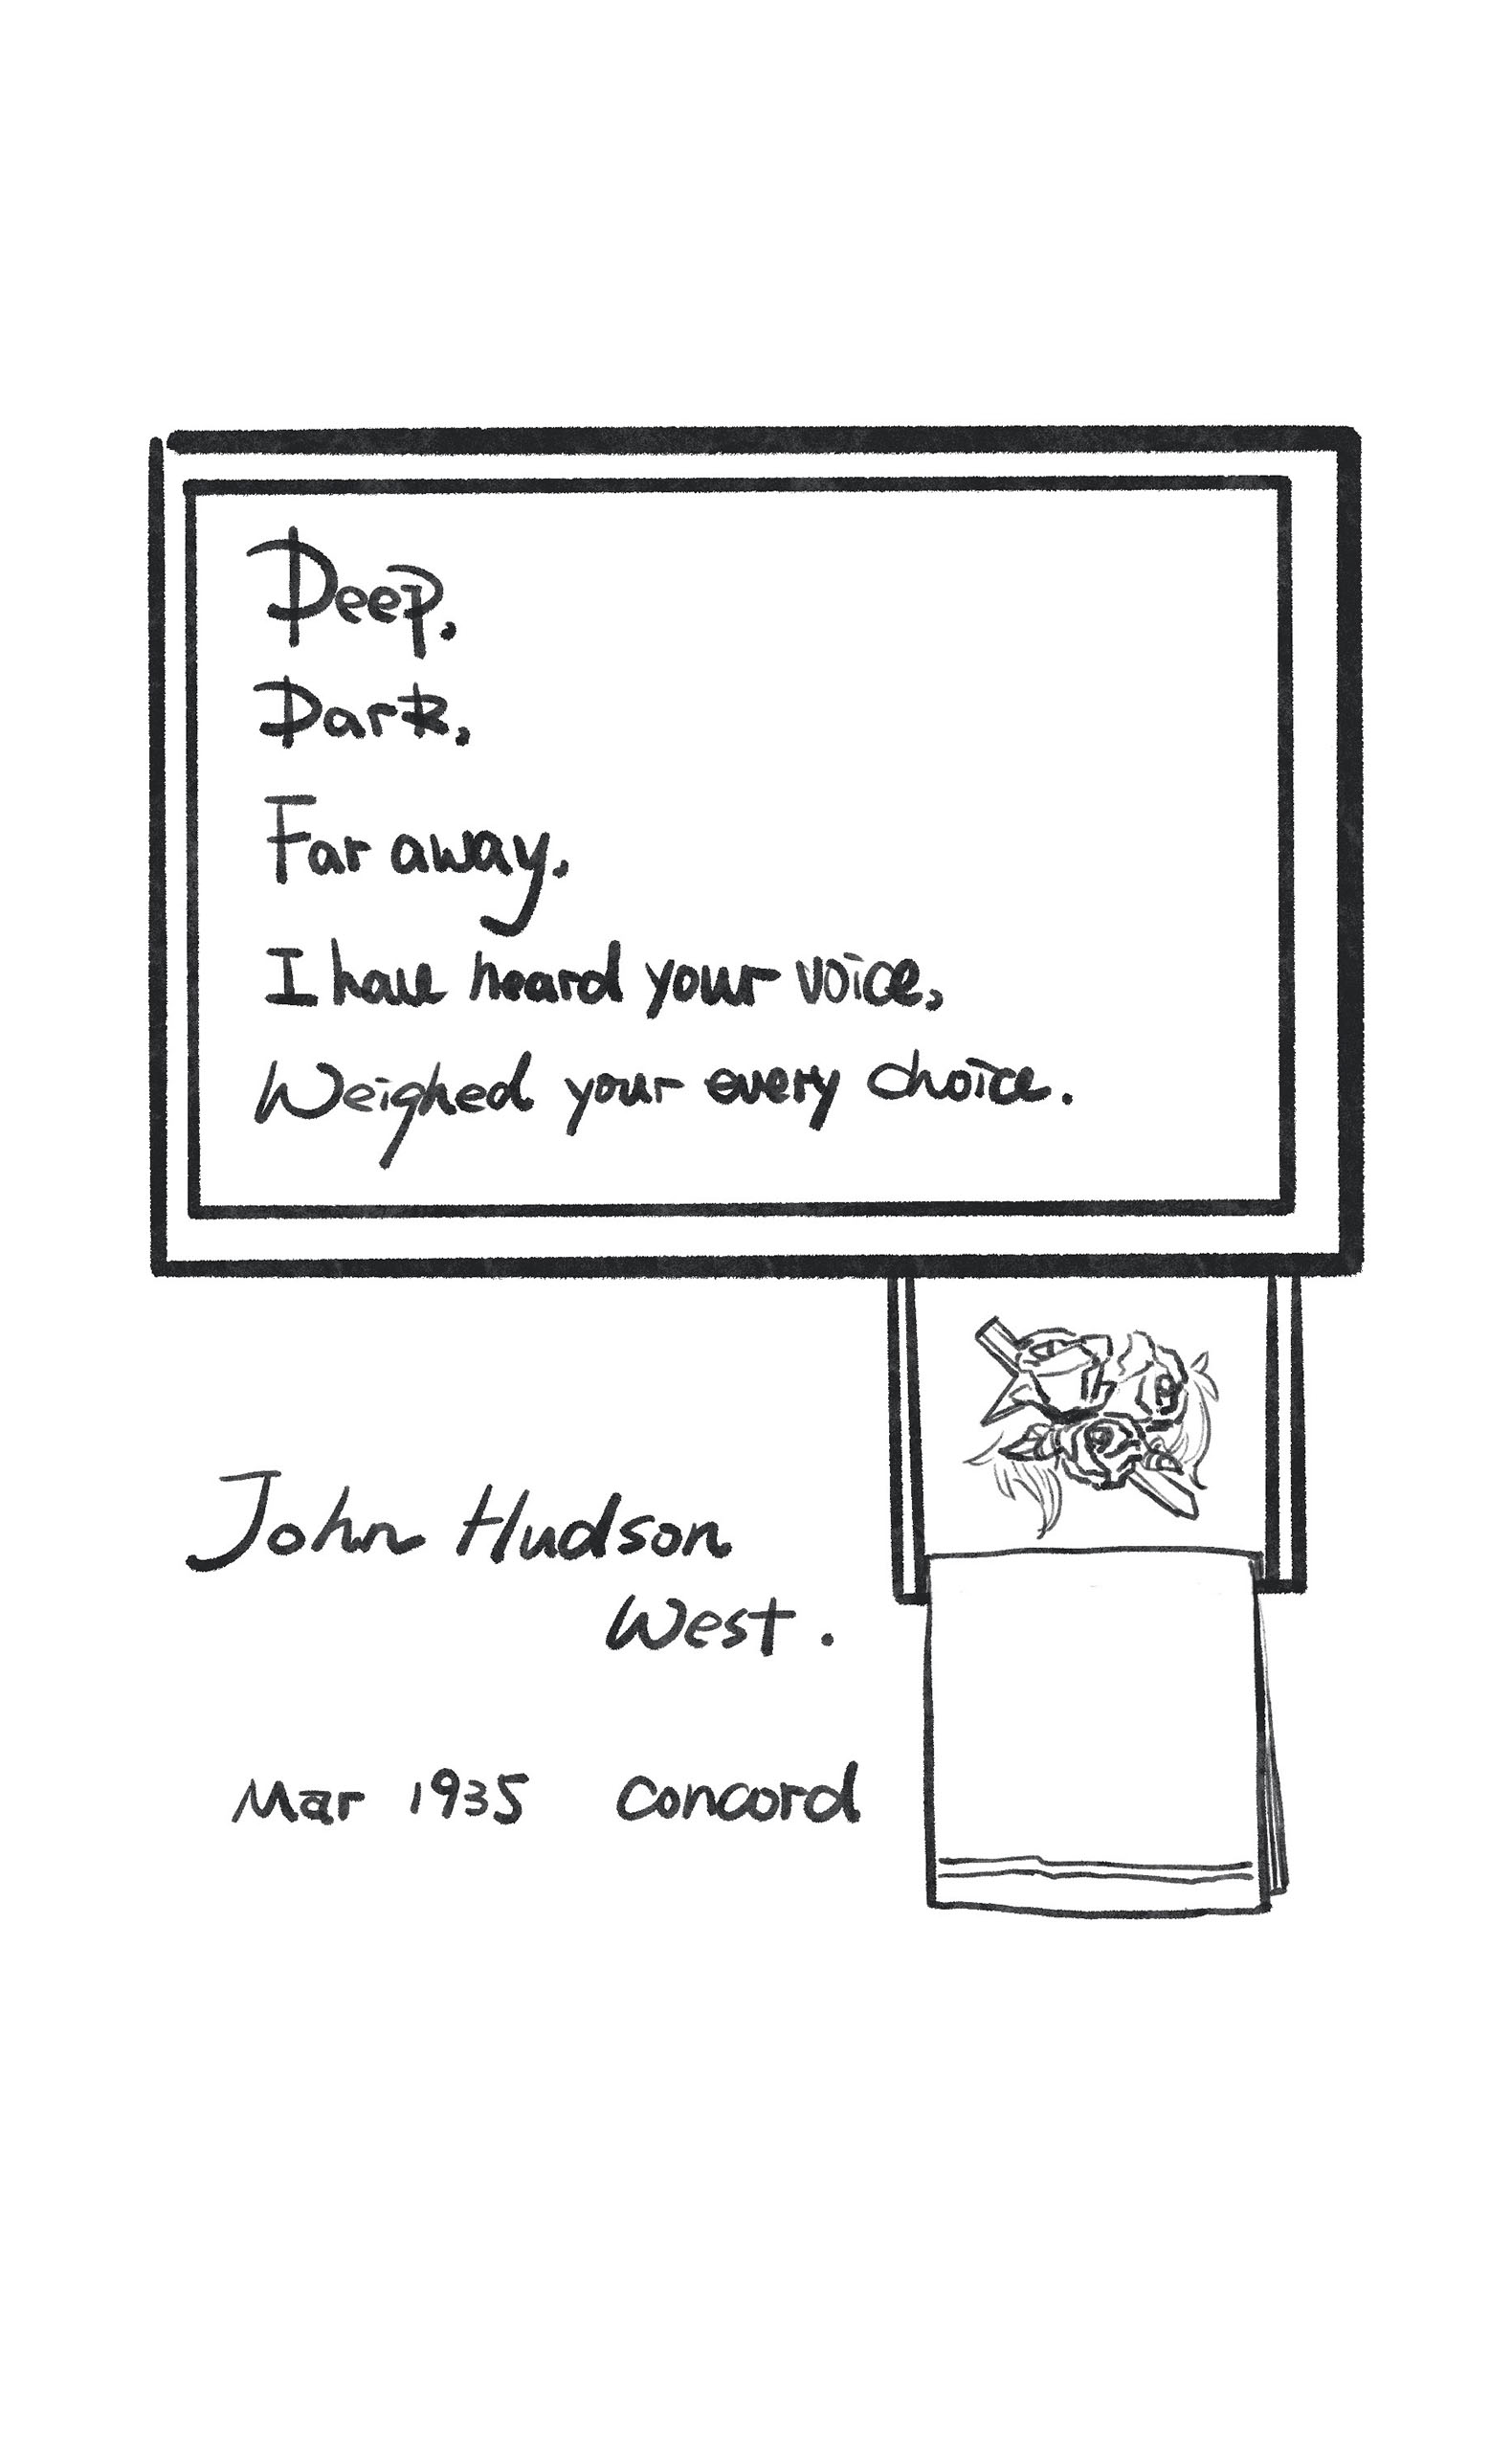 Deep.
Dark.
Far away.
I have heard your voice,
Weighed your every choice.
John Hudson
West.
Mar 1935 Concord